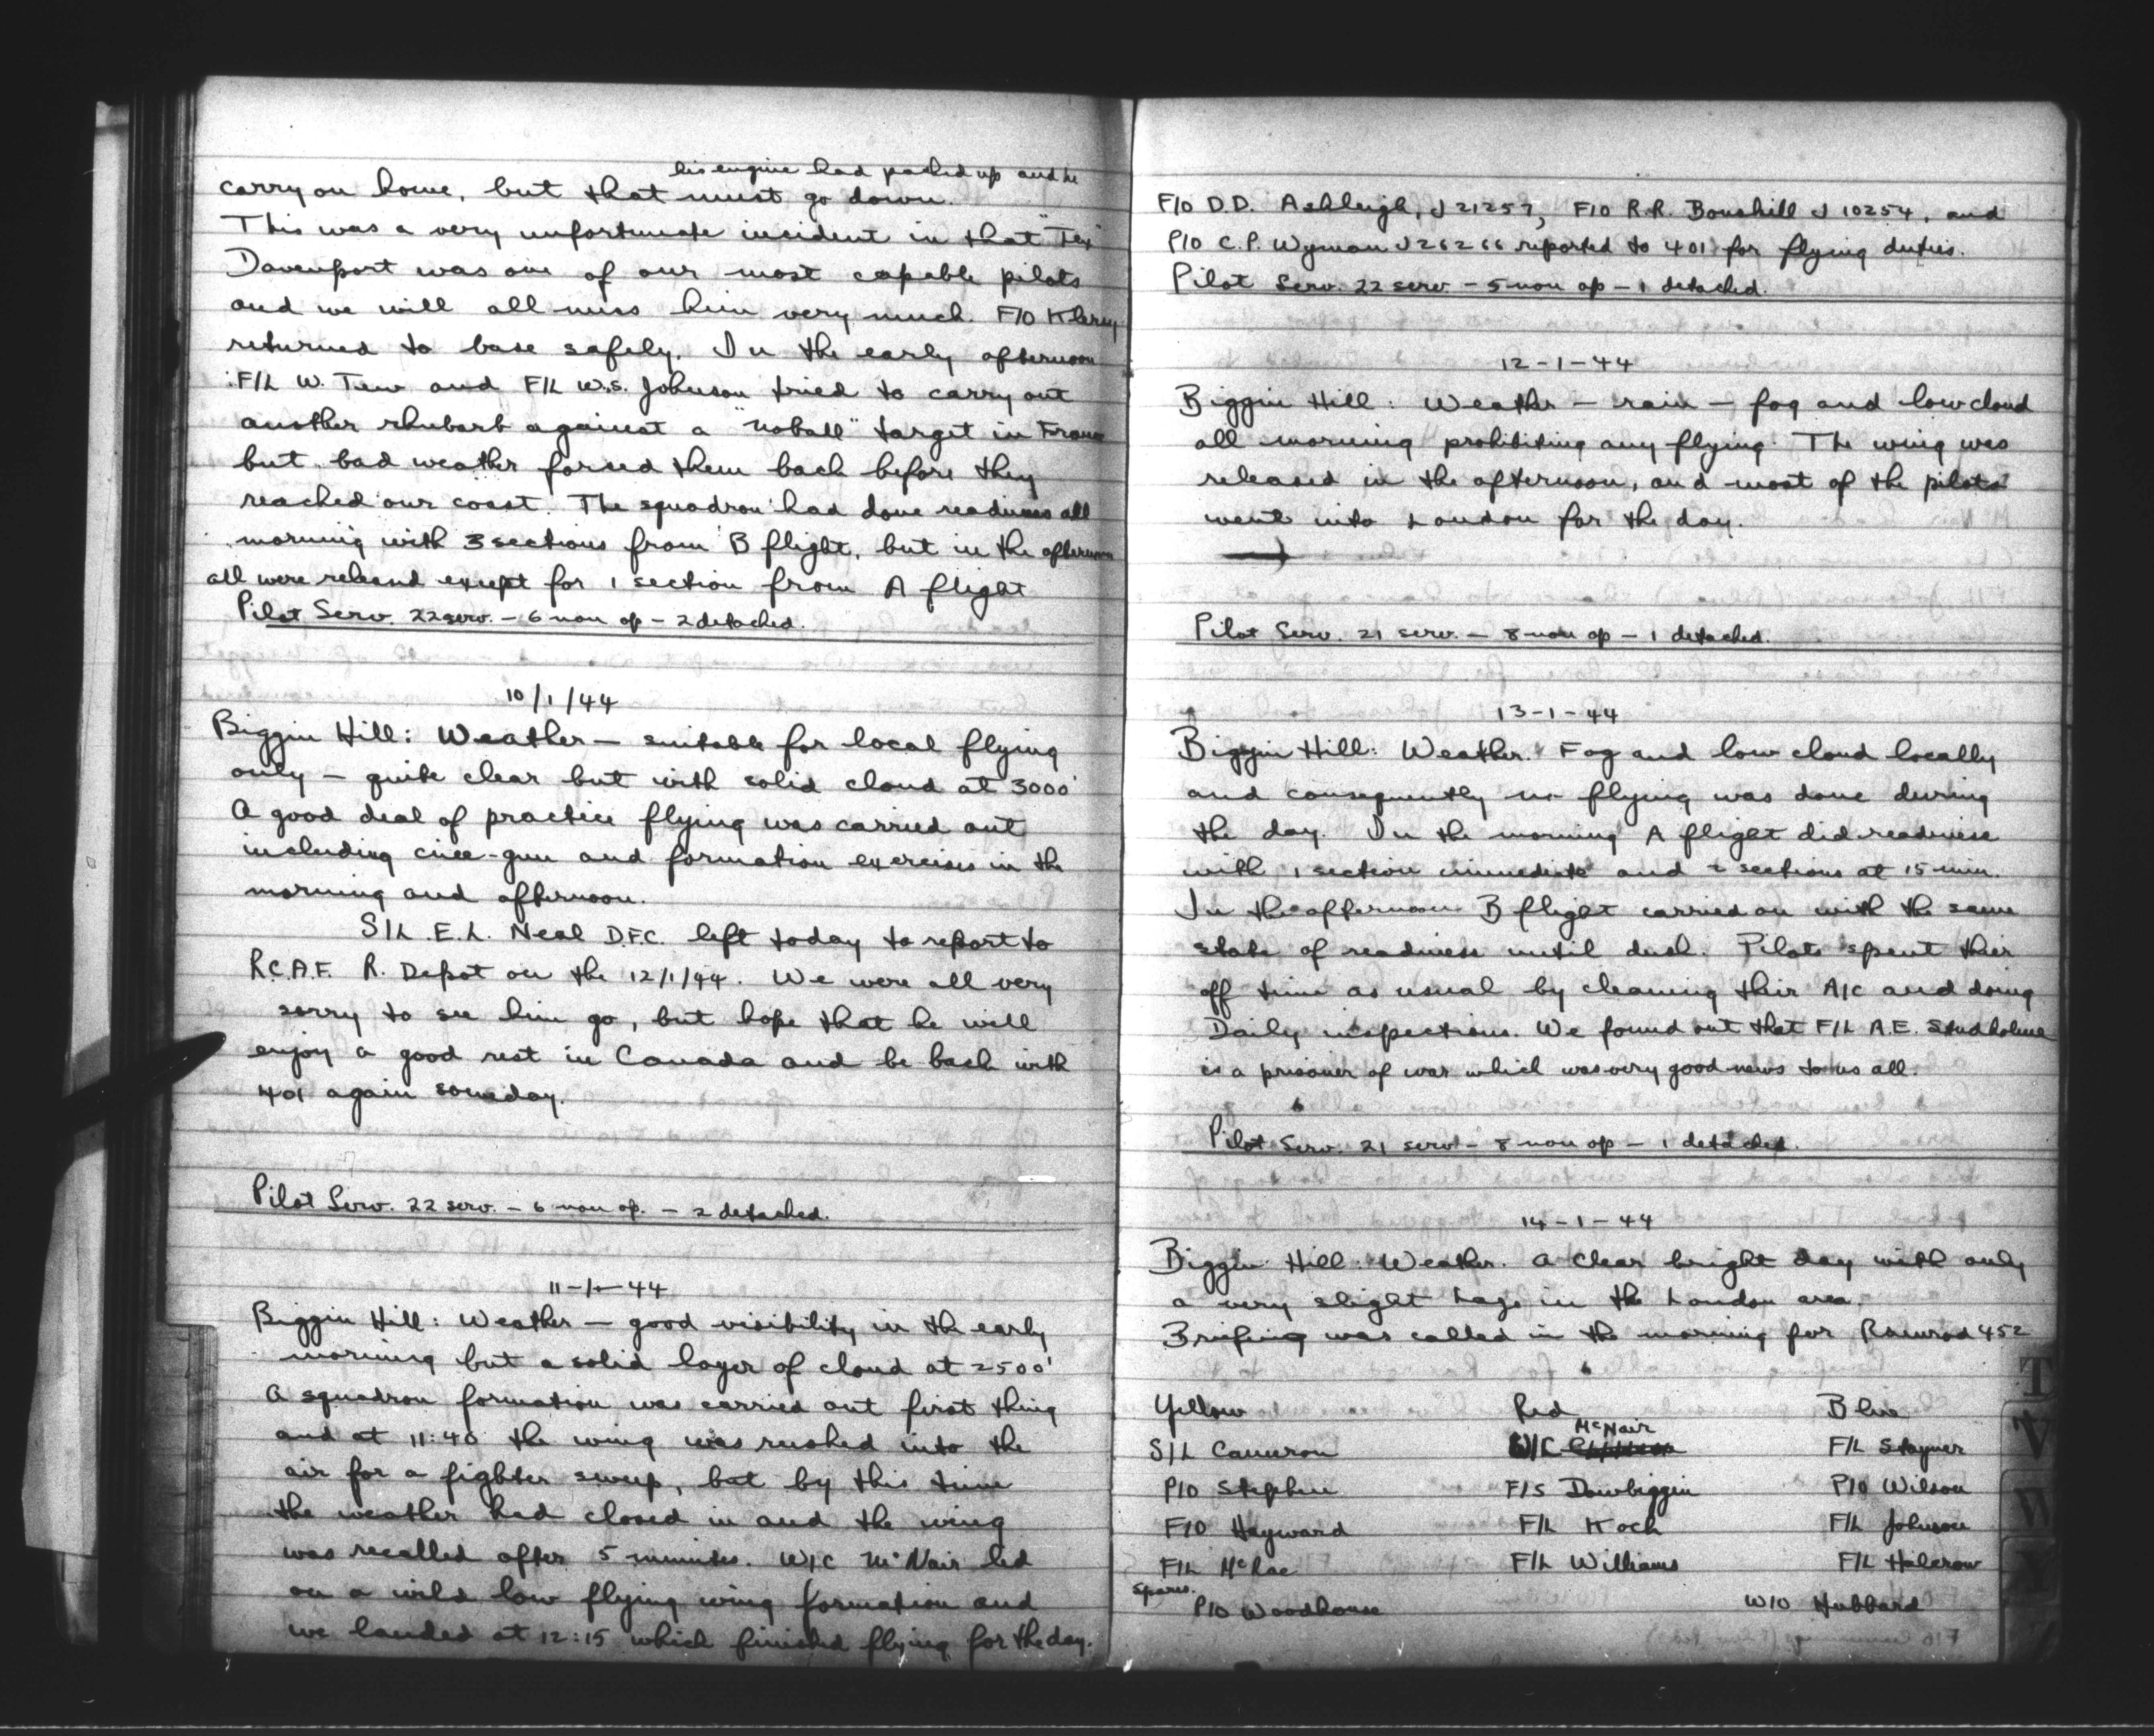 his engine had packed up and he
carry on home, but that must go down.
This was a very unfortunate incident in that "Tex"
Davenport was one of our most capable pilots
and we will all miss him very much. F/O Klersy
returned to base safely. In the early afternoon
F/L W. Tew and F/L W.S. Johnson tried to carry out
another rhubarb against a "noball" target in France
but bad weather forced them back before they
reached our coast. The squadron had done readiness all
morning with 3 sections from B flight, but in the afternoon
all were released except for 1 section from A flight
Pilot Serv. 22 serv. – 6 non op – 2 detached.
10/1/44
Biggin Hill: Weather – suitable for local flying
only – quite clear but with solid cloud at 3000'
A good deal of practice flying was carried out
including cine-gun and formation exercises in the
morning and afternoon.
S/L E.L. Neal D.F.C. left today to report to
R.C.A.F. R. Depot on the 12/1/44. We were all very
sorry to see him go, but hope that he will
enjoy a good rest in Canada and be back with
401 again someday.
Pilot Serv. 22 serv. – 6 non op. – 2 detached.
11-1-44
Biggin Hill: Weather – good visibility in the early
morning but a solid layer of cloud at 2500'
A squadron formation was carried out first thing
and at 11:40 the wing was rushed into the
air for a fighter sweep, but by this time
the weather had closed in and the wing
was recalled after 5 minutes. W/C McNair led
on a wild low flying wing formation and
we landed at 12:15 which finished flying for the day.
F/O D.D. Ashleigh, J21257, F/O R.R. Bouskill J10254, and
P/O C.P. Wyman J26266 reported to 401 for flying duties.
Pilot Serv. 22 serv. – 5 non op – 1 detached.
12-1-44
Biggin Hill: Weather – rain – fog and low cloud
all morning prohibiting any flying. The wing was
released in the afternoon, and most of the pilots
went into London for the day.
Pilot Serv. 21 serv. – 8 non op – 1 detached.
13-1-44
Biggin Hill: Weather. Fog and low cloud locally
and consequently no flying was done during
the day. In the morning A flight did readiness
with 1 section immediate and 2 sections at 15 min.
In the afternoon B flight carried on with the same
state of readiness until dusk. Pilots spent their
off time as usual by cleaning their A/C and doing
Daily inspections. We found out that F/L A.E. Studholme
is a prisoner of war which was very good news to us all.
Pilot Serv. 21 serv – 8 non op – 1 detached.
14-1-44
Biggin Hill: Weather. A clear bright day with only
a very slight haze in the London area.
Briefing was called in the morning for Ramrod 452
Yellow Red Blue
McNair
S/L Cameron W/C F/L Stayner
P/O Stephen F/S Dowbiggin P/O Wilson
F/O Hayward F/L Koch F/L Johnson
F/L McRae F/L Williams F/L Halcrow
Spares.
P/O Woodhouse W/O Hubbard
T
V
W
Y
Z